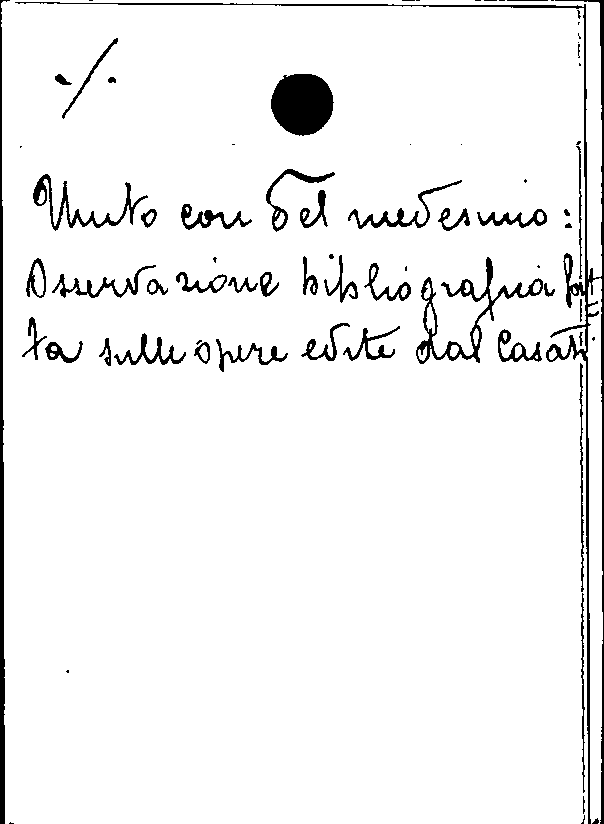 ./.
Unito con del medesimo:
Osservazione bibliografica fat
ta sulle opere edite dal Casati